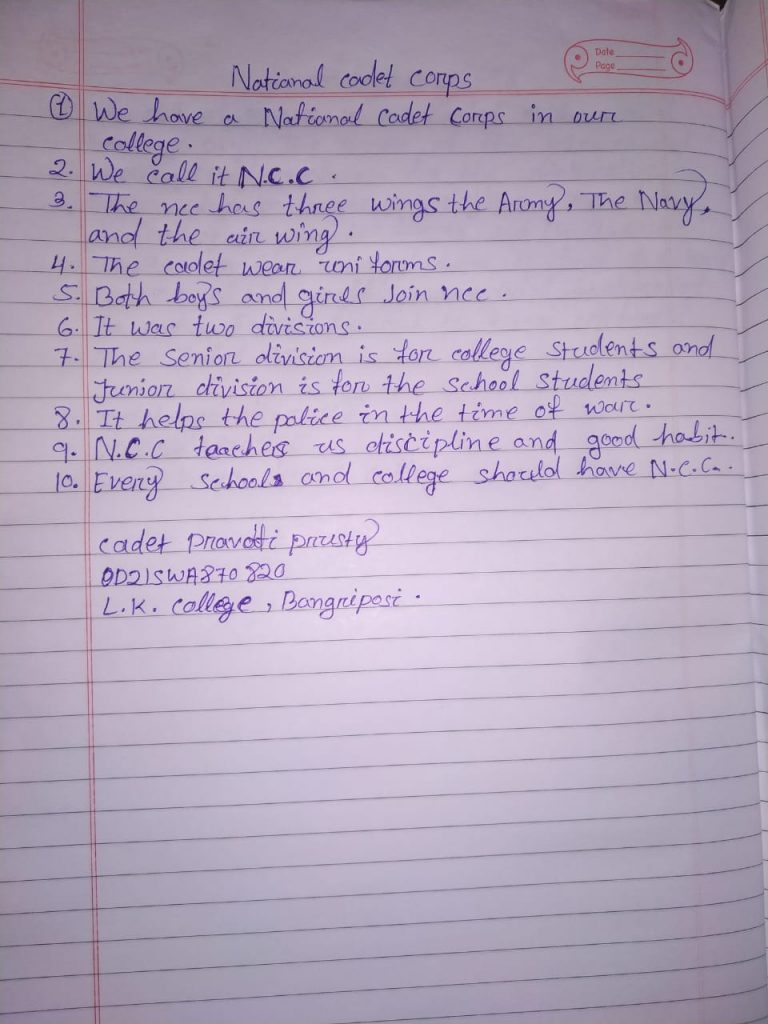 Date
Page
National cadet corps
1 We have a National Cadet Corps in our
college.
2. We call it N.C.C.
3. The ncc has three wings the Army, The Navy,
and the air wing.
4. The cadet wear uniforms.
5. Both boys and girls Join ncc.
6. It was two divisions.
7. The Senior division is for college students and
Junior division is for the school students
8. It helps the police in the time of war.
9. N.C.C teachers us discipline and good habit.
10. Every schools and college should have N.C.C..
cadet Pravati prusty
OD21SWA870820
L.K. College, Bangriposi.